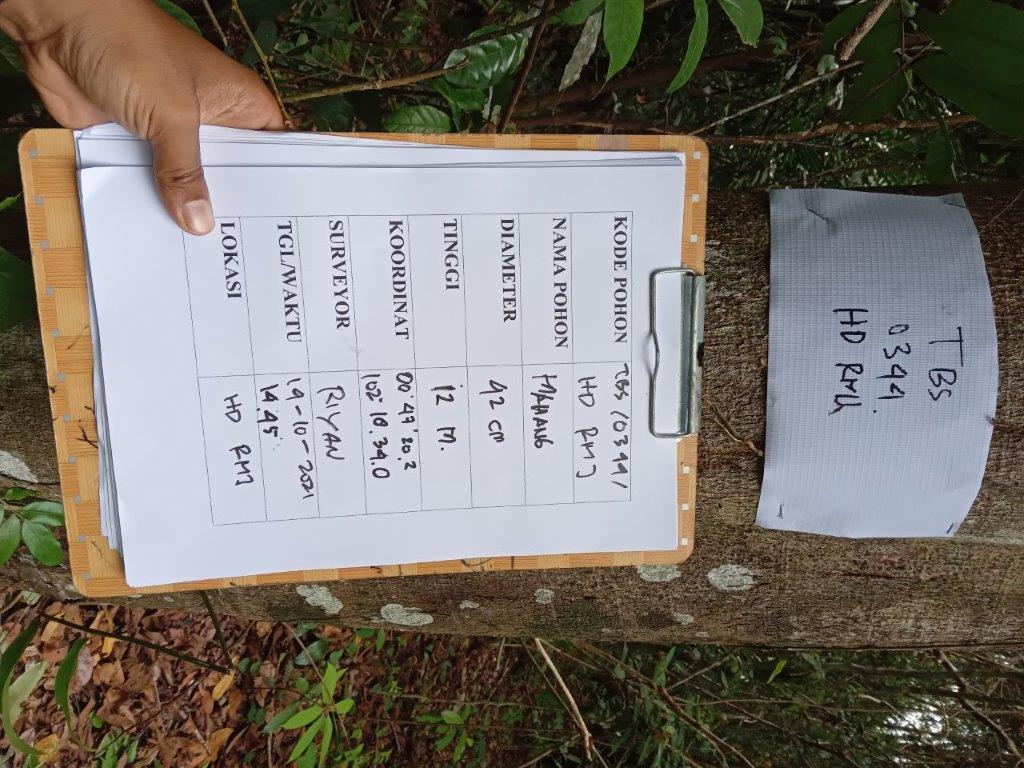 TBS
0344.
HD RMY
KODE POHON TBS / 0344 /
HD RMJ
NAMA POHON MAHANG
DIAMETER 42 cm
TINGGI 12 M.
KOORDINAT 00° 47' 20.2
102° 10. 34.0
SURVEYOR RIYAN
TGL/WAKTU 14-10-2021
14.45
LOKASI HD RMJ